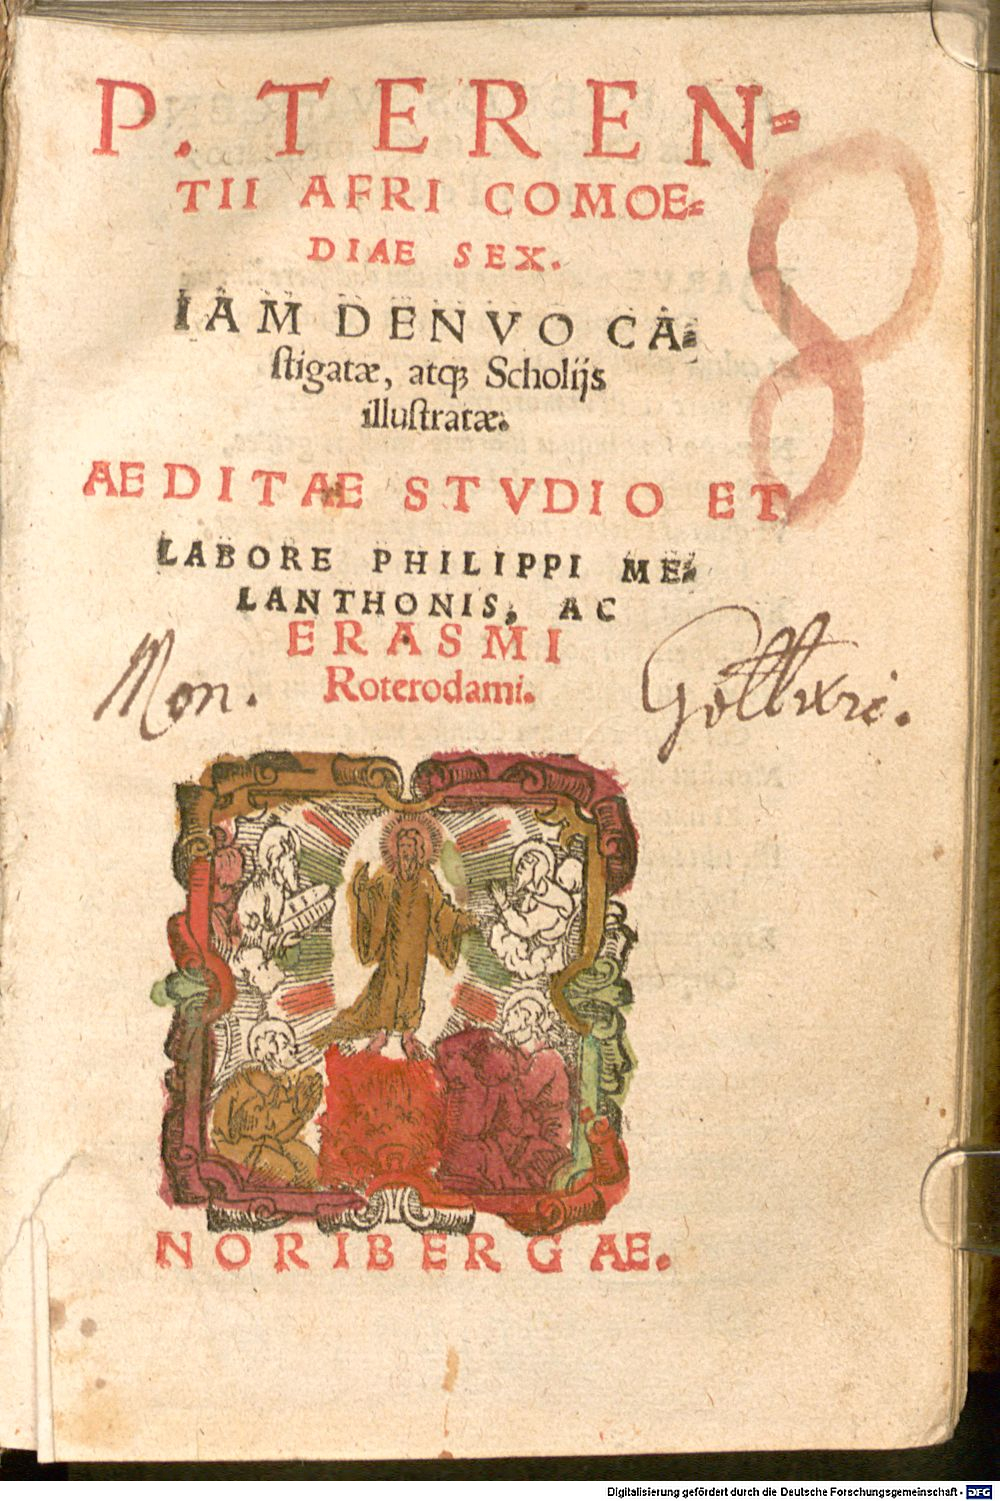 P. TEREN-
TII AFRI COMOE-
DIAE SEX.
IAM DENVO CA-
ſtigatæ, atqꝫ Scholijs
illuſtratæ.
AEDITAE STVDIO ET
LABORE PHILIPPI ME-
LANTHONIS, AC
ERASMI
Roterodami.
Mon.
NORIBERGAE.
Digitalisierung gefördert durch die Deutsche Forschungsgemeinschaft - DFG